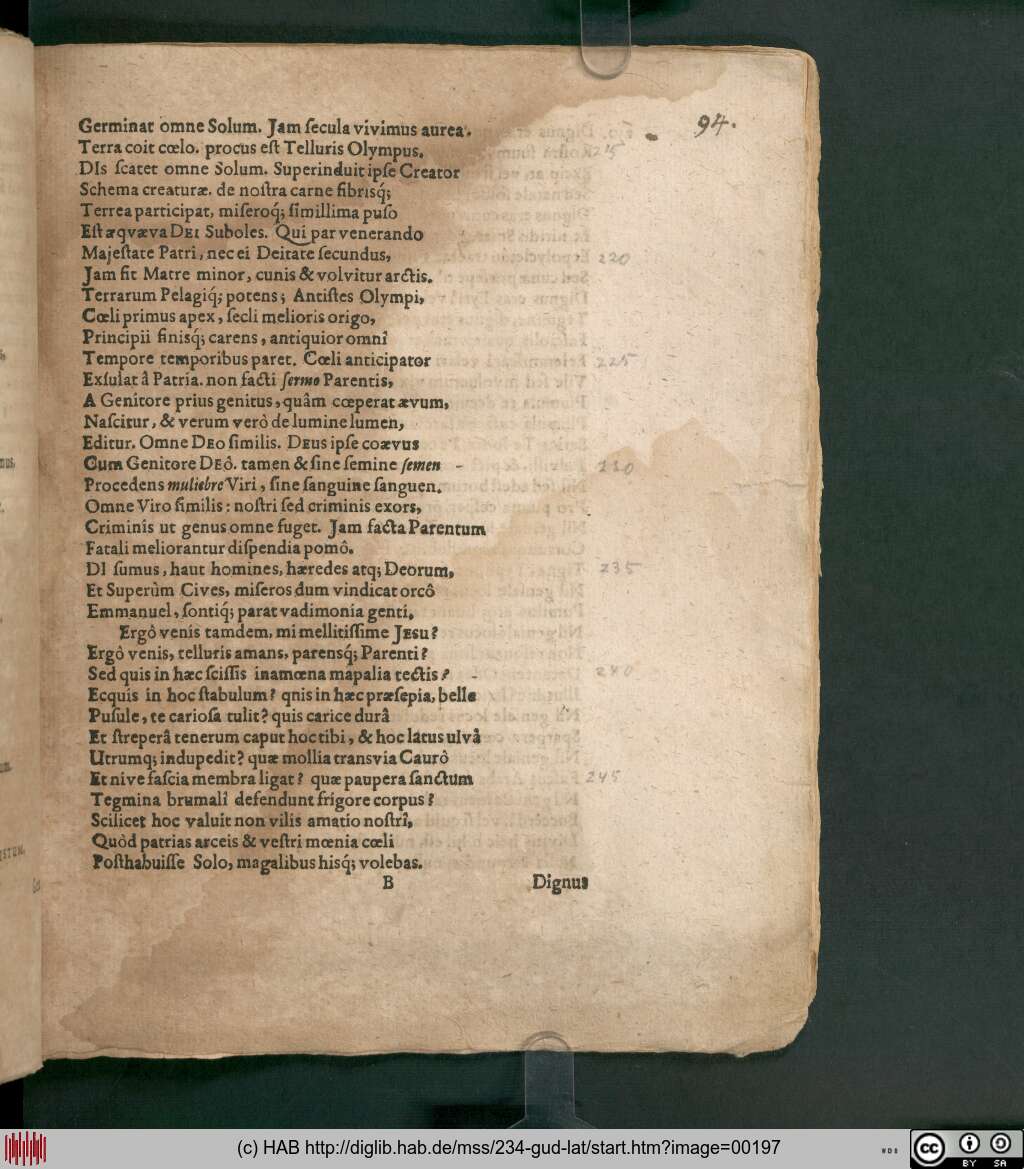 94.
Germinat omne Solum. Jam ſecula vivimus aurea.
Terra coit cœlo. procus eſt Telluris Olympus.
215
DIs ſcatet omne Solum. Superinduit ipſe Creator
Schema creaturæ. de noſtra carne fibrisq́;
Terrea participat, miſeroq́; ſimillima puſo
Eſt æqvæva DEI Suboles. Qui par venerando
Majeſtate Patri, nec ei Deitate ſecundus,
220
Jam fit Matre minor, cunis & volvitur arctis.
Terrarum Pelagiq́; potens; Antiſtes Olympi,
Cœli primus apex, ſecli melioris origo,
Principii finisq́; carens, antiquior omnî
Tempore temporibus paret. Cœli anticipator
225
Exſulat â Patria. non facti ſermo Parentis,
A Genitore prius genitus, quâm cœperat ævum,
Naſcitur, & verum verò de lumine lumen,
Editur. Omne DEO ſimilis. DEUS ipſe coævus
Cum Genitore DEÔ. tamen & ſine ſemine ſemen -
230
Procedens muliebre Viri, ſine ſanguine ſanguen.
Omne Viro ſimilis: noſtri ſed criminis exors,
Criminis ut genus omne fuget. Jam facta Parentum
Fatali meliorantur diſpendia pomô.
DI ſumus, haut homines, hæredes atq; Deorum,
235
Et Superùm Cives, miſeros dum vindicat orcô
Emmanuel, ſontiq́; parat vadimonia genti.
Ergô venis tamdem, mi mellitiſſime JESU?
Ergô venis, telluris amans, parensq́; Parenti?
Sed quis in hæc ſciſſis inamœna mapalia tectis?
240
Ecquis in hoc ſtabulum? qnis in hæc præſepia, belle
Puſule, te carioſa tulit? quis carice durâ
Et ſtreperâ tenerum caput hoc tibi, & hoc latus ulvâ
Utrumq; indupedit? quæ mollia transvia Caurô
Et nive faſcia membra ligat? quæ paupera ſanctum
245
Tegmina brumalî defendunt frigore corpus?
Scilicet hoc valuit non vilis amatio noſtrî,
Quòd patrias arceis & veſtri mœnia cœli
Poſthabuiſſe Solo, magalibus hisq́; volebas.
B
Dignus
(c) HAB http://diglib.hab.de/mss/234-gud-lat/start.htm?image=00197
WDB
cc
BY SA